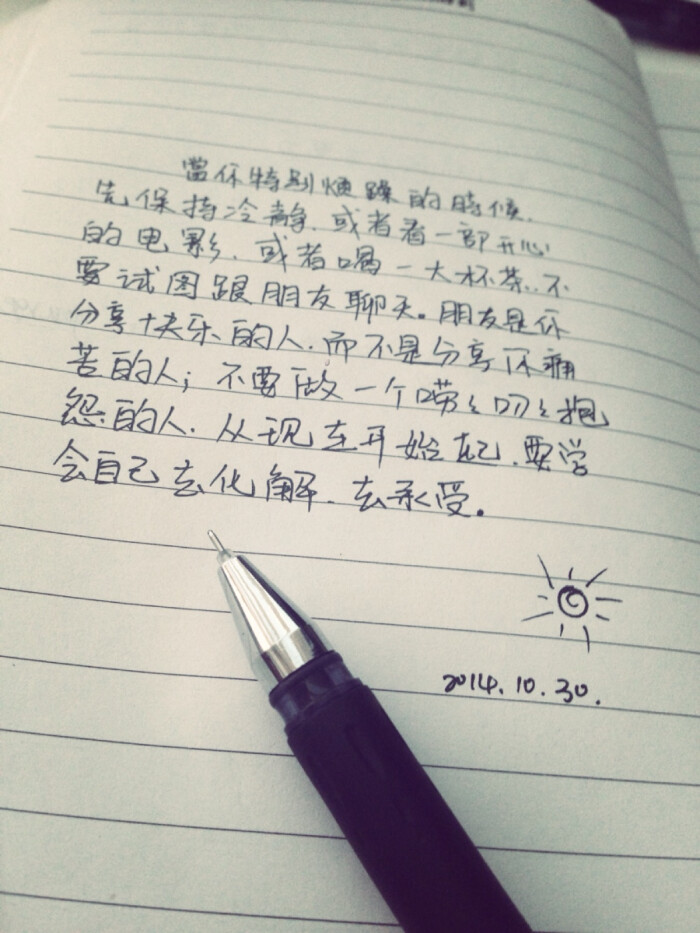 當你特别烦躁的時候.
先保持冷静.或者看一部开心
的电影.或者喝一大杯茶..不
要试图跟朋友聊天。朋友是你
分享快乐的人.而不是分享你痛
苦的人；不要做一个唠〻叨〻抱
怨的人.从现在开始起.要学
会自己去化解.去承受。
2014.10.30.